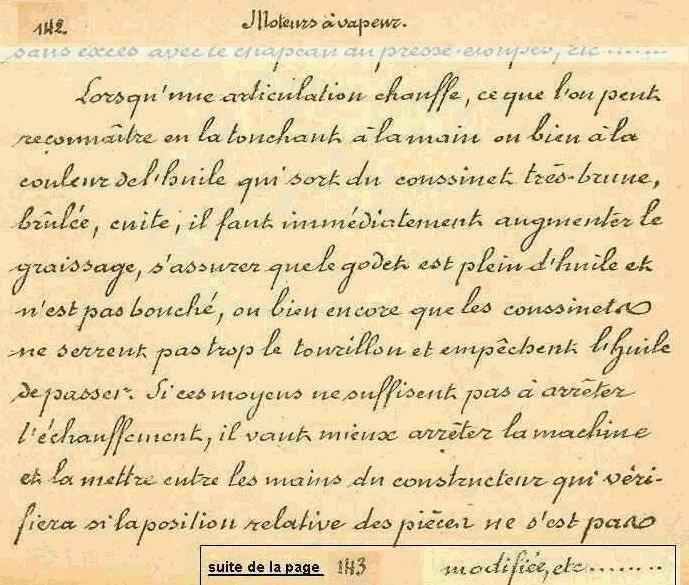 142. Moteurs à vapeur.
sans excès avec le chapeau du presse-étoupes, etc .......
Lorsqu'une articulation chauffe, ce que l'on peut
reconnaître en la touchant à la main ou bien à la
couleur de l'huile qui sort du coussinet très-brune,
brûlée, cuite, il faut immédiatement augmenter le
graissage, s'assurer que le godet est plein d'huile et
n'est pas bouché, ou bien encore que les coussinets
ne serrent pas trop le tourillon et empêchent l'huile
de passer. Si ces moyens ne suffisent pas à arrêter
l'échauffement, il vaut mieux arrêter la machine
et la mettre entre les mains du constructeur qui véri-
fiera si la position relative des pièces ne s'est pas
suite de la page 143 modifiée, etc ........